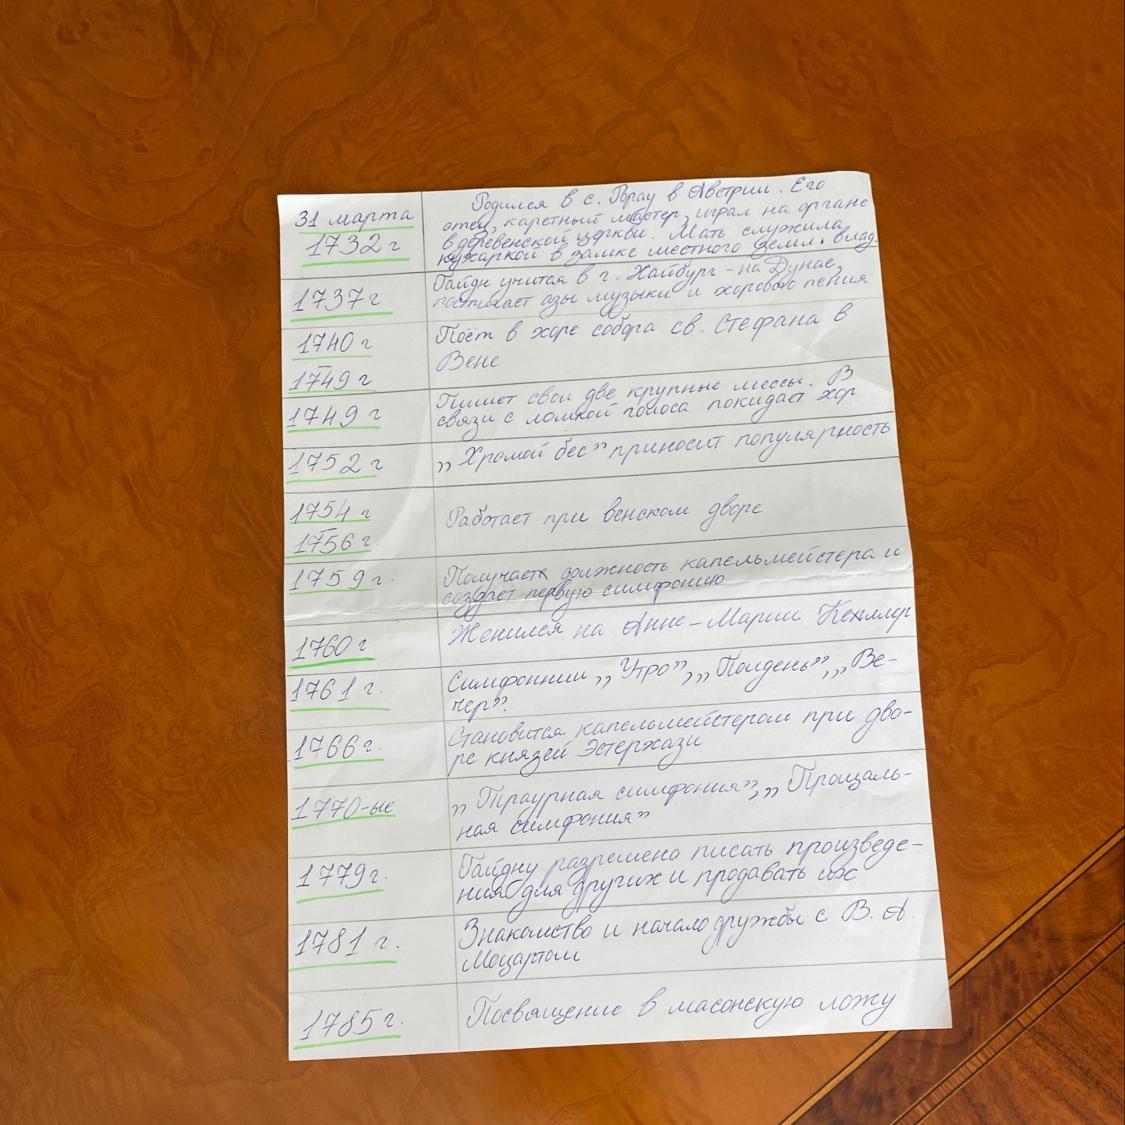 31 марта
1732 г
Родился в с. Рорау в Австрии. Его
отец, каретный мастер, играл на органе
в деревенской церкви. Мать служила
кухаркой в замке местного земл. влад.
1737 г
Гайдн учится в г. Хайнбург-на Дунае,
постигает азы музыки и хорового пения
1740 г
–
1749 г
Поёт в хоре собора св. Стефана в
Вене
1749 г
Пишет свои две крупные мессы. В
связи с ломкой голоса покидает хор
1752 г
„Хромой бес” приносит популярность
1754 г
–
1756 г.
Работает при венском дворе
1759 г.
Получает должность капельмейстера и
создаёт первую симфонию
1760 г
Женился на Анне-Марии Келлер
1761 г.
Симфонии „Утро”, „Полдень”, „Ве-
чер”.
1766 г.
Становится капельмейстером при дво-
ре князей Эстерхази
1770-ые
„Траурная симфония”, „Прощаль-
ная симфония”
1779 г.
Гайдну разрешено писать произведе-
ния для других и продавать их
1781 г.
Знакомство и начало дружбы с В. А.
Моцартом
1785 г.
Посвящение в масонскую ложу